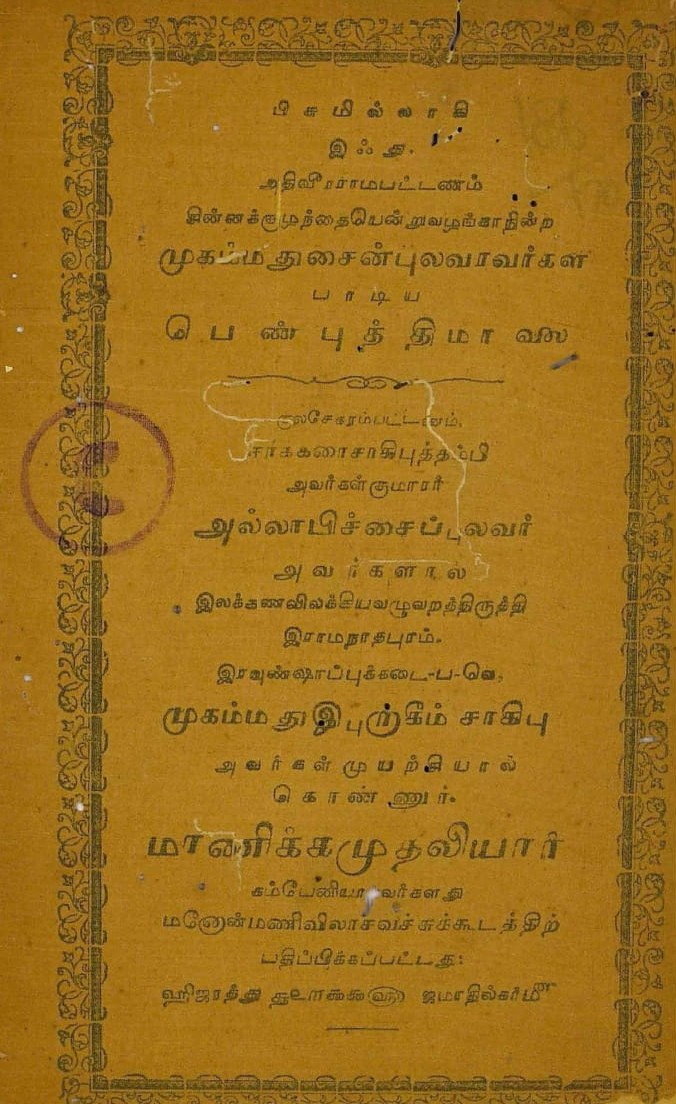 பிசுமில்லாகி
இஃது.
அதிவீரராமபட்டணம்
சின்னக்குழந்தையென்றுவழங்காநின்ற
முகம்மதுசைன்புலவரவர்கள்
பாடிய
பெண்புத்திமாலை
குலசேகரம்பட்டணம்,
சர்க்கரைசாகிபுத்தம்பி
அவர்கள்குமாரர்
அல்லாபிச்சைப்புலவர்
அவர்களால்
இலக்கணவிலக்கியவழுவறத்திருத்தி
இராமநாதபுரம்.
இரவுண்ஷாப்புக்கடை-ப-வெ,
முகம்மதுஇபுறாகீம் சாகிபு
அவர்கள்முயற்சியால்
கொண்ணூர்.
மாணிக்கமுதலியார்
கம்பேனியாரவர்களது
மனோன்மணிவிலாசவச்சுக்கூடத்திற்
பதிப்பிக்கப்பட்டது:
ஹிஜரத்து ஜமாதில்